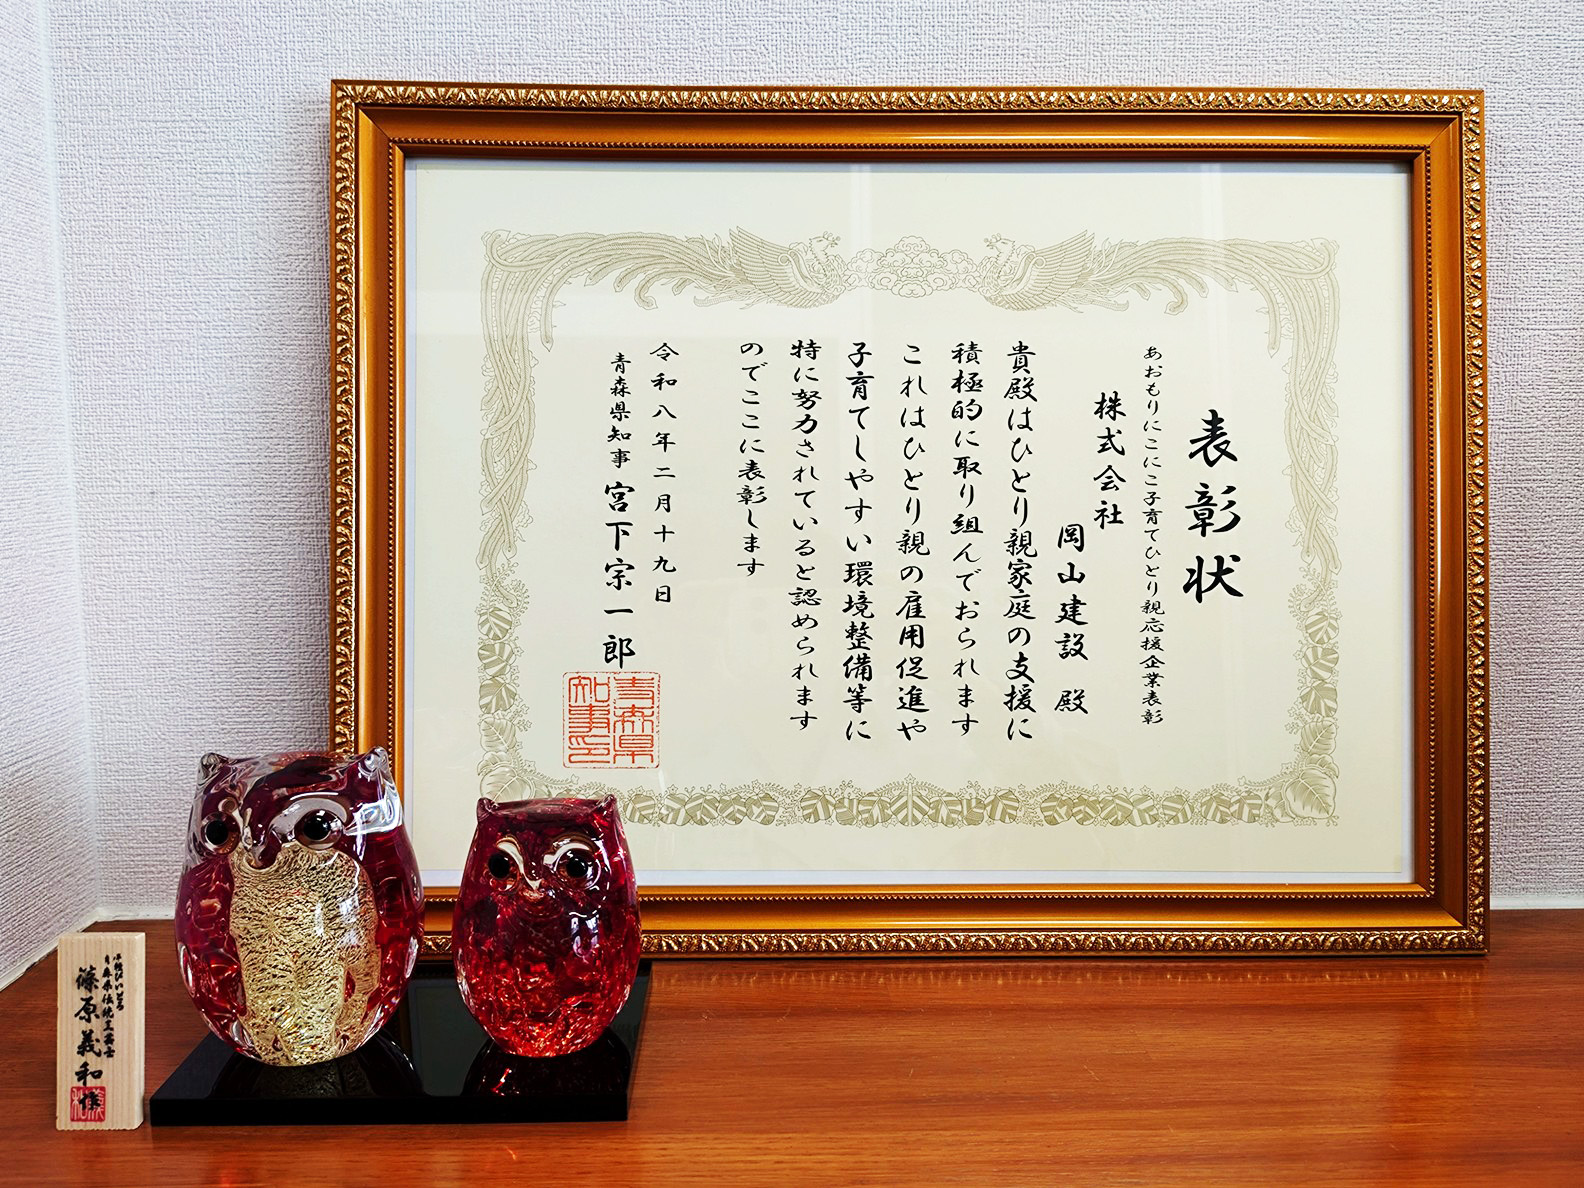 表彰状
あおもりにこにこ子育てひとり親応援企業表彰
株式会社
岡山建設 殿
貴殿はひとり親家庭の支援に
積極的に取り組んでおられます
これはひとり親の雇用促進や
子育てしやすい環境整備等に
特に努力されていると認められます
のでここに表彰します
令和八年二月十九日
青森県知事 宮下宗一郎
青森県
知事印
津軽びいどろ
青森県伝統工芸士
篠原義和